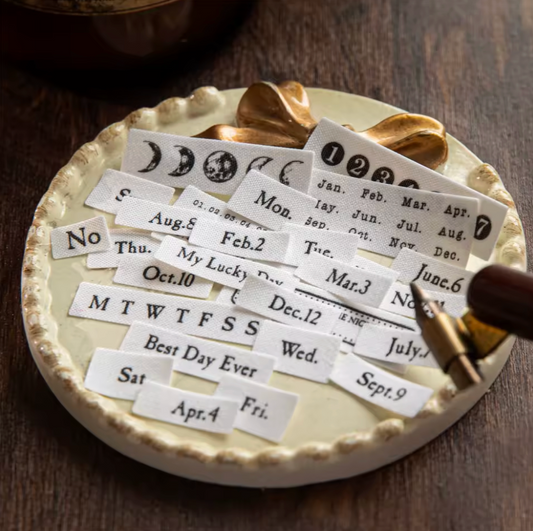 1 2 3
7
Jan. Feb. Mar. Apr.
Jun. Jul. Aug.
Nov. Dec.
S
Mon.
Aug.8
01.02.03.04
No
Thu.
Feb.2
Tue.
June.6
Oct.10
My Lucky Day
Mar.3
No
M T W T F S S
Dec.12
July.
Best Day Ever
Wed.
Sat
Sept.9
Apr.4
Fri.